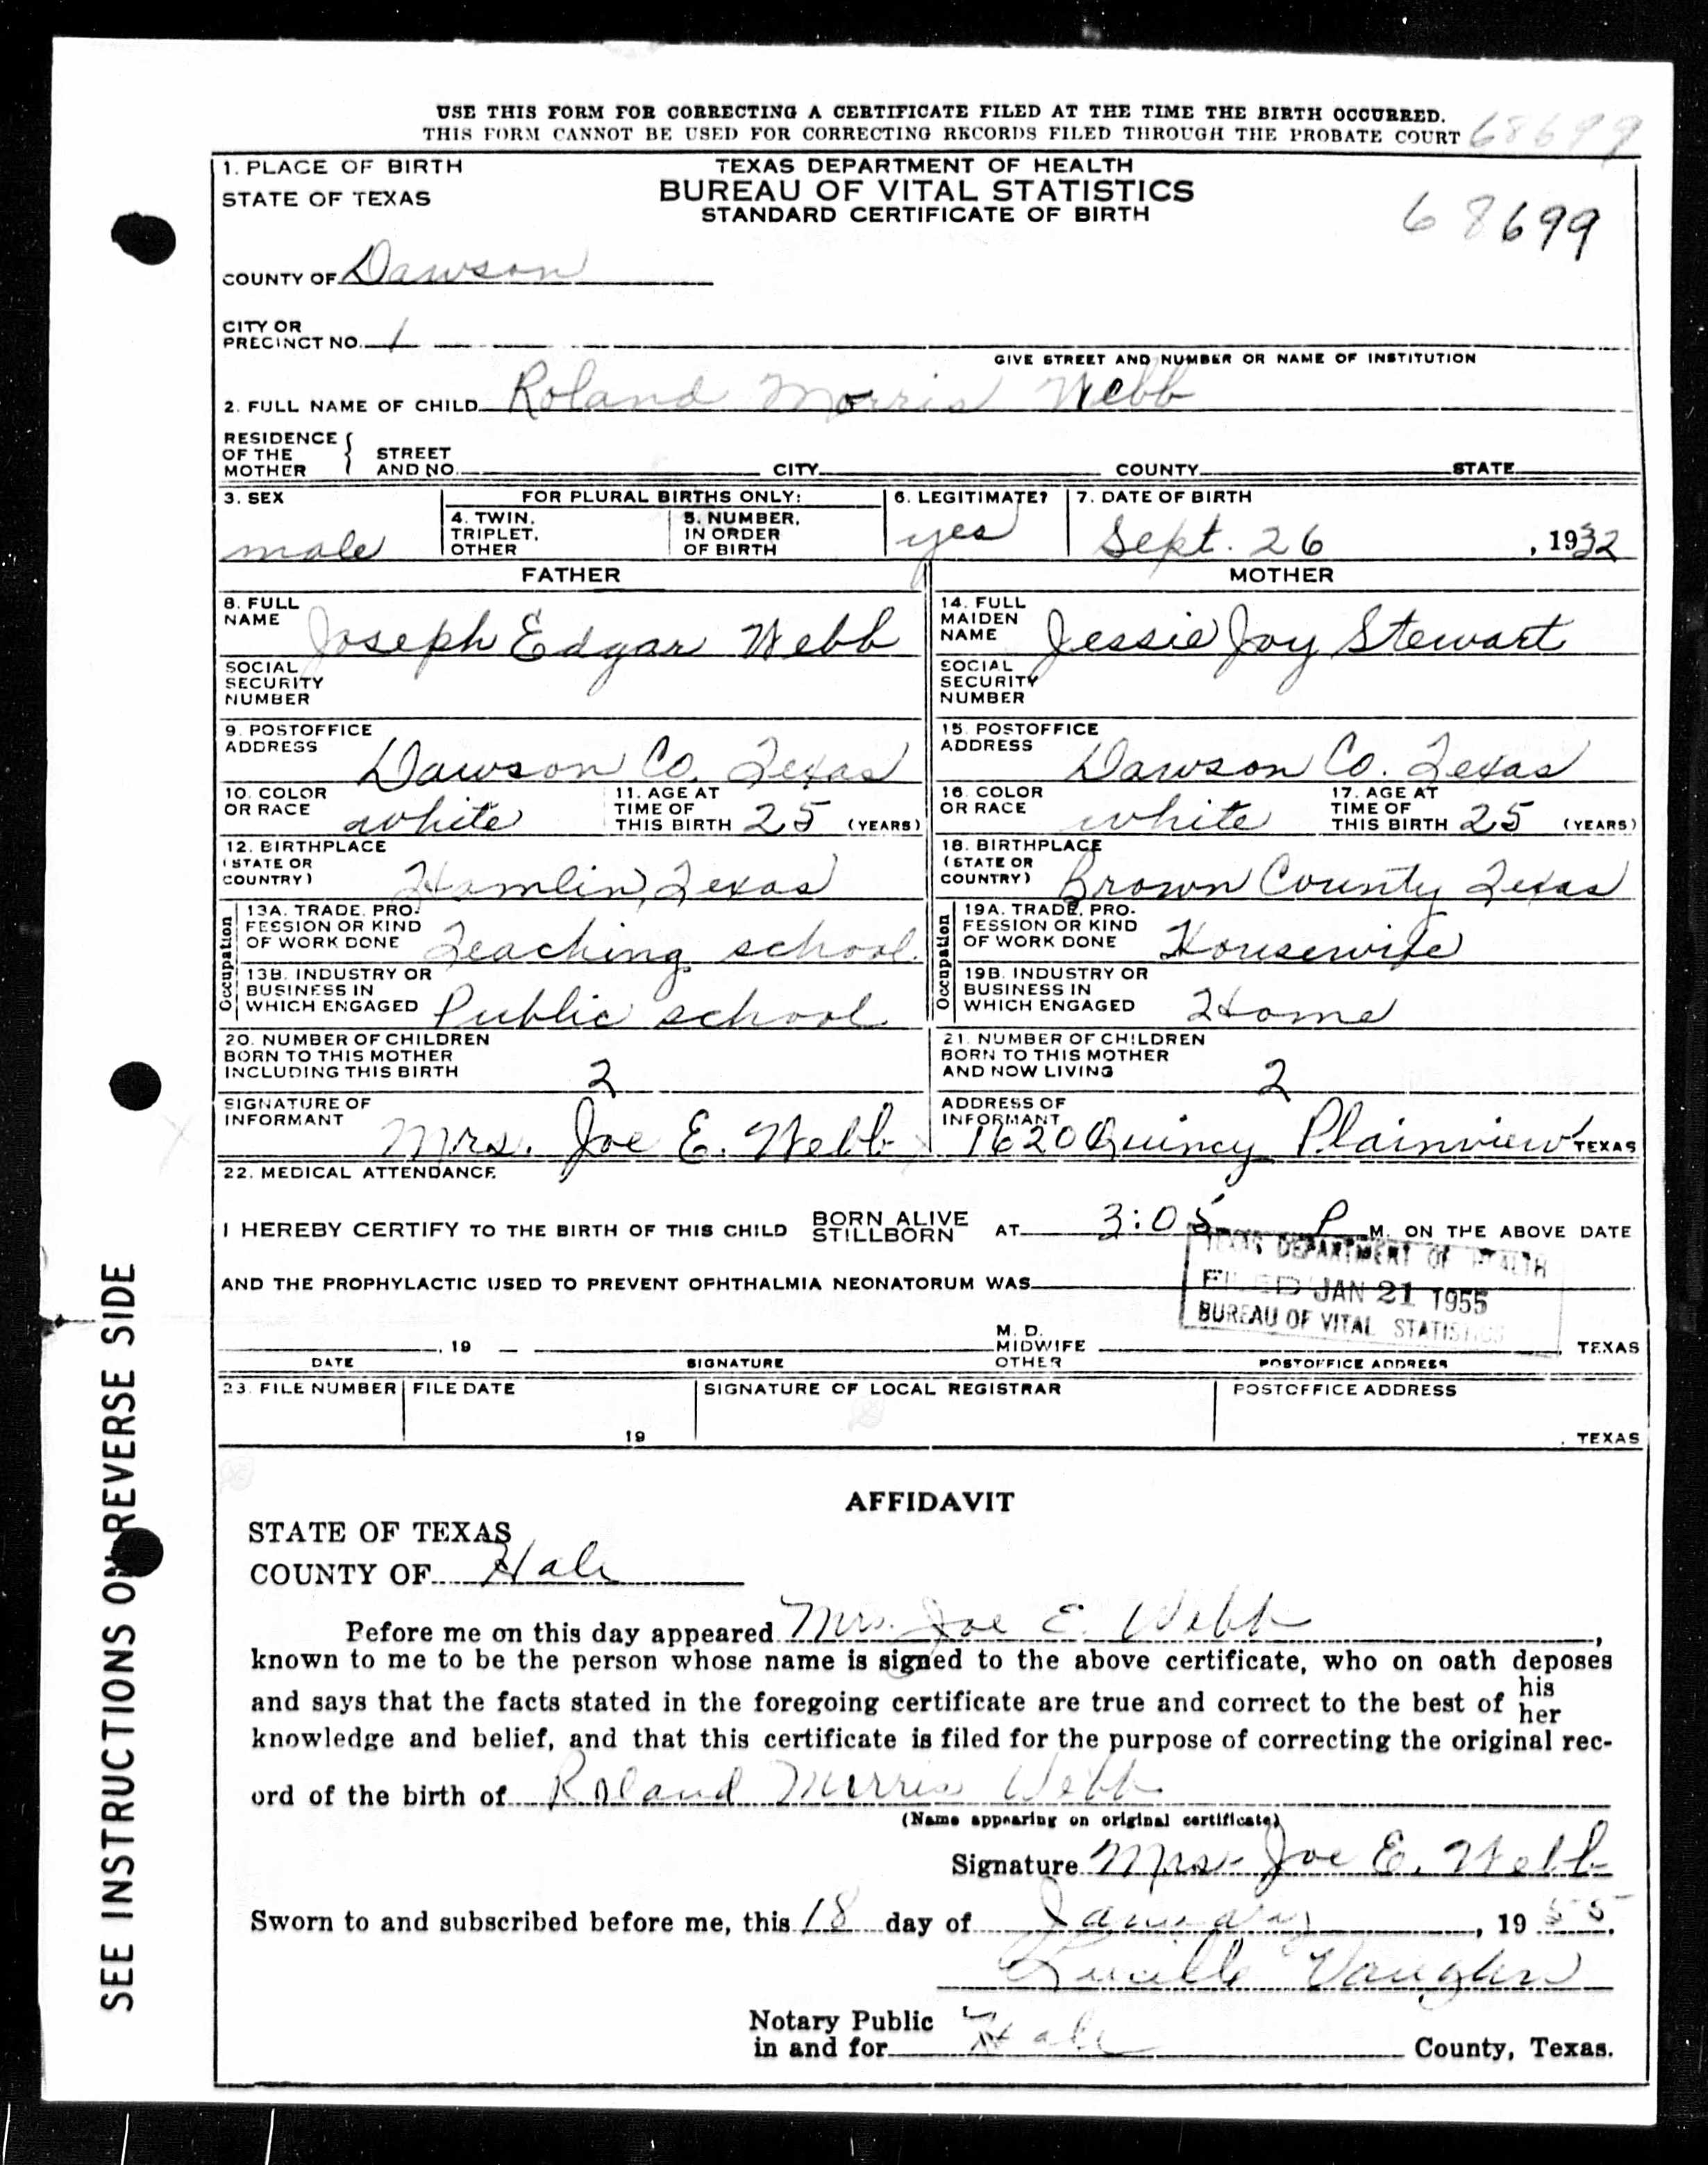 USE THIS FORM FOR CORRECTING A CERTIFICATE FILED AT THE TIME THE BIRTH OCCURRED.
THIS FORM CANNOT BE USED FOR CORRECTING RECORDS FILED THROUGH THE PROBATE COURT 68699
1. PLACE OF BIRTH
STATE OF TEXAS
TEXAS DEPARTMENT OF HEALTH
BUREAU OF VITAL STATISTICS
STANDARD CERTIFICATE OF BIRTH
68699
COUNTY OF Dawson
CITY OR
PRECINCT NO. 1
GIVE STREET AND NUMBER OR NAME OF INSTITUTION
2. FULL NAME OF CHILD Roland Morris Webb
RESIDENCE
OF THE
MOTHER
STREET
AND NO. CITY COUNTY STATE
3. SEX
male
FOR PLURAL BIRTHS ONLY:
4. TWIN,
TRIPLET,
OTHER
5. NUMBER,
IN ORDER
OF BIRTH
6. LEGITIMATE?
yes
7. DATE OF BIRTH
Sept. 26, 1932
FATHER
MOTHER
8. FULL
NAME Joseph Edgar Webb
14. FULL
MAIDEN
NAME Jessie Joy Stewart
SOCIAL
SECURITY
NUMBER
SOCIAL
SECURITY
NUMBER
9. POSTOFFICE
ADDRESS Dawson Co. Texas
15. POSTOFFICE
ADDRESS Dawson Co. Texas
10. COLOR
OR RACE white
11. AGE AT
TIME OF
THIS BIRTH 25 (YEARS)
16. COLOR
OR RACE white
17. AGE AT
TIME OF
THIS BIRTH 25 (YEARS)
12. BIRTHPLACE
(STATE OR
COUNTRY) Hamlin, Texas
18. BIRTHPLACE
(STATE OR
COUNTRY) Brown County Texas
Occupation
13A. TRADE, PRO-
FESSION OR KIND
OF WORK DONE Teaching school
13B. INDUSTRY OR
BUSINESS IN
WHICH ENGAGED Public school
Occupation
19A. TRADE, PRO-
FESSION OR KIND
OF WORK DONE Housewife
19B. INDUSTRY OR
BUSINESS IN
WHICH ENGAGED Home
20. NUMBER OF CHILDREN
BORN TO THIS MOTHER
INCLUDING THIS BIRTH 2
21. NUMBER OF CHILDREN
BORN TO THIS MOTHER
AND NOW LIVING 2
SIGNATURE OF
INFORMANT Mrs. Joe E. Webb
ADDRESS OF
INFORMANT 1620 Quincy Plainview TEXAS
22. MEDICAL ATTENDANCE
I HEREBY CERTIFY TO THE BIRTH OF THIS CHILD BORN ALIVE
STILLBORN AT 3:05 P M. ON THE ABOVE DATE
AND THE PROPHYLACTIC USED TO PREVENT OPHTHALMIA NEONATORUM WAS
TEXAS DEPARTMENT OF HEALTH
FILED JAN 21 1955
BUREAU OF VITAL STATISTICS
, 19
M. D.
MIDWIFE
OTHER
TEXAS
DATE SIGNATURE POSTOFFICE ADDRESS
23. FILE NUMBER FILE DATE SIGNATURE OF LOCAL REGISTRAR POSTOFFICE ADDRESS
19 , TEXAS
AFFIDAVIT
STATE OF TEXAS
COUNTY OF Hale
Before me on this day appeared Mrs. Joe E. Webb,
known to me to be the person whose name is signed to the above certificate, who on oath deposes
and says that the facts stated in the foregoing certificate are true and correct to the best of his
her
knowledge and belief, and that this certificate is filed for the purpose of correcting the original rec-
ord of the birth of Roland Morris Webb
(Name appearing on original certificate)
Signature Mrs. Joe E. Webb
Sworn to and subscribed before me, this 18 day of January, 19 55.
Lucille Vaughn
Notary Public
in and for Hale County, Texas.
SEE INSTRUCTIONS ON REVERSE SIDE